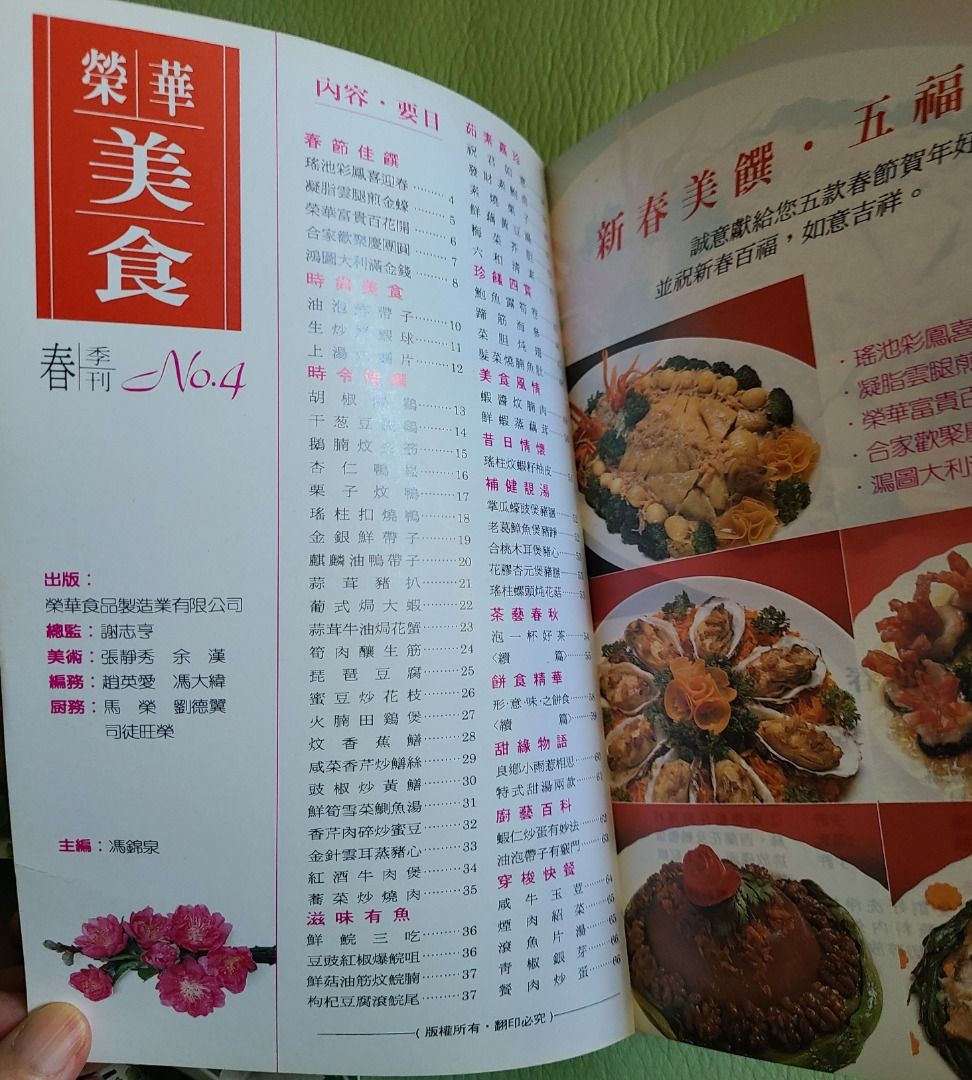 榮華
美
食
春季刊 No.4
出版：
榮華食品製造業有限公司
總監：謝志亨
美術：張靜秀 余漢
編務：趙英愛 馮大緯
厨務：馬榮 劉德翼
司徒旺榮
主編：馮錦泉
內容・要目
春節佳饌
瑤池彩鳳喜迎春………4
凝脂雲腿煎金蠔………5
榮華富貴百花開………6
合家歡聚慶團圓………7
鴻圖大利滿金錢………8
時尚美食
油泡 帶子………10
生炒 蝦球………11
上湯 片………12
時令佳饌
胡椒 鷄………13
干葱豆 鷄………14
鵝腩炆 筋………15
杏仁鴨崧………16
栗子炆鴨………17
瑤柱扣燒鴨………18
金銀鮮帶子………19
麒麟油鴨帶子………20
蒜茸豬扒………21
葡式焗大蝦………22
蒜茸牛油焗花蟹………23
筍肉釀生筋………24
琵琶豆腐………25
蜜豆炒花枝………26
火腩田鷄煲………27
炆香蕉鱔………28
咸菜香芹炒鱔絲………29
豉椒炒黃鱔………30
鮮筍雪菜鰂魚湯………31
香芹肉碎炒蜜豆………32
金針雲耳蒸豬心………33
紅酒牛肉煲………34
蕎菜炒燒肉………35
滋味有魚
鮮鯇三吃………36
豆豉紅椒爆鯇咀………36
鮮菇油筋炆鯇腩………37
枸杞豆腐滾鯇尾………37
茹素嘉珍
祝君如意
發財素
素燒栗子
鮮藕黃豆
梅菜芥
六和清素
珍饈四寶
鮑魚露筍卷
蹄筋海參
菜胆炖翅
髮菜燒腩魚肚
美食風情
蝦醬炆腩肉
鮮蝦蒸藕茸
昔日情懷
瑤柱炆蝦籽柚皮
補健靚湯
掌瓜蠔豉煲豬
老葛鱆魚煲豬
合桃木耳煲豬心
花膠杏元煲豬
瑤柱螺頭炖花菇
茶藝春秋
泡一杯好茶………54
〈續篇〉………55
餅食精華
形・意・味・之餅食………58
〈續篇〉………59
甜緣物語
良鄉小雨惹相思………60
特式甜湯兩款………61
廚藝百科
蝦仁炒蛋有妙法………62
油泡帶子有竅門………63
穿梭快餐
咸牛玉荳………64
煙肉紹菜………65
滾魚片湯………65
青椒銀芽………66
餐肉炒蛋………66
（版權所有・翻印必究）
新春美饌・五福
誠意獻給您五款春節賀年好
並祝新春百福，如意吉祥。
・瑤池彩鳳喜
・凝脂雲腿煎
・榮華富貴百
・合家歡聚慶
・鴻圖大利